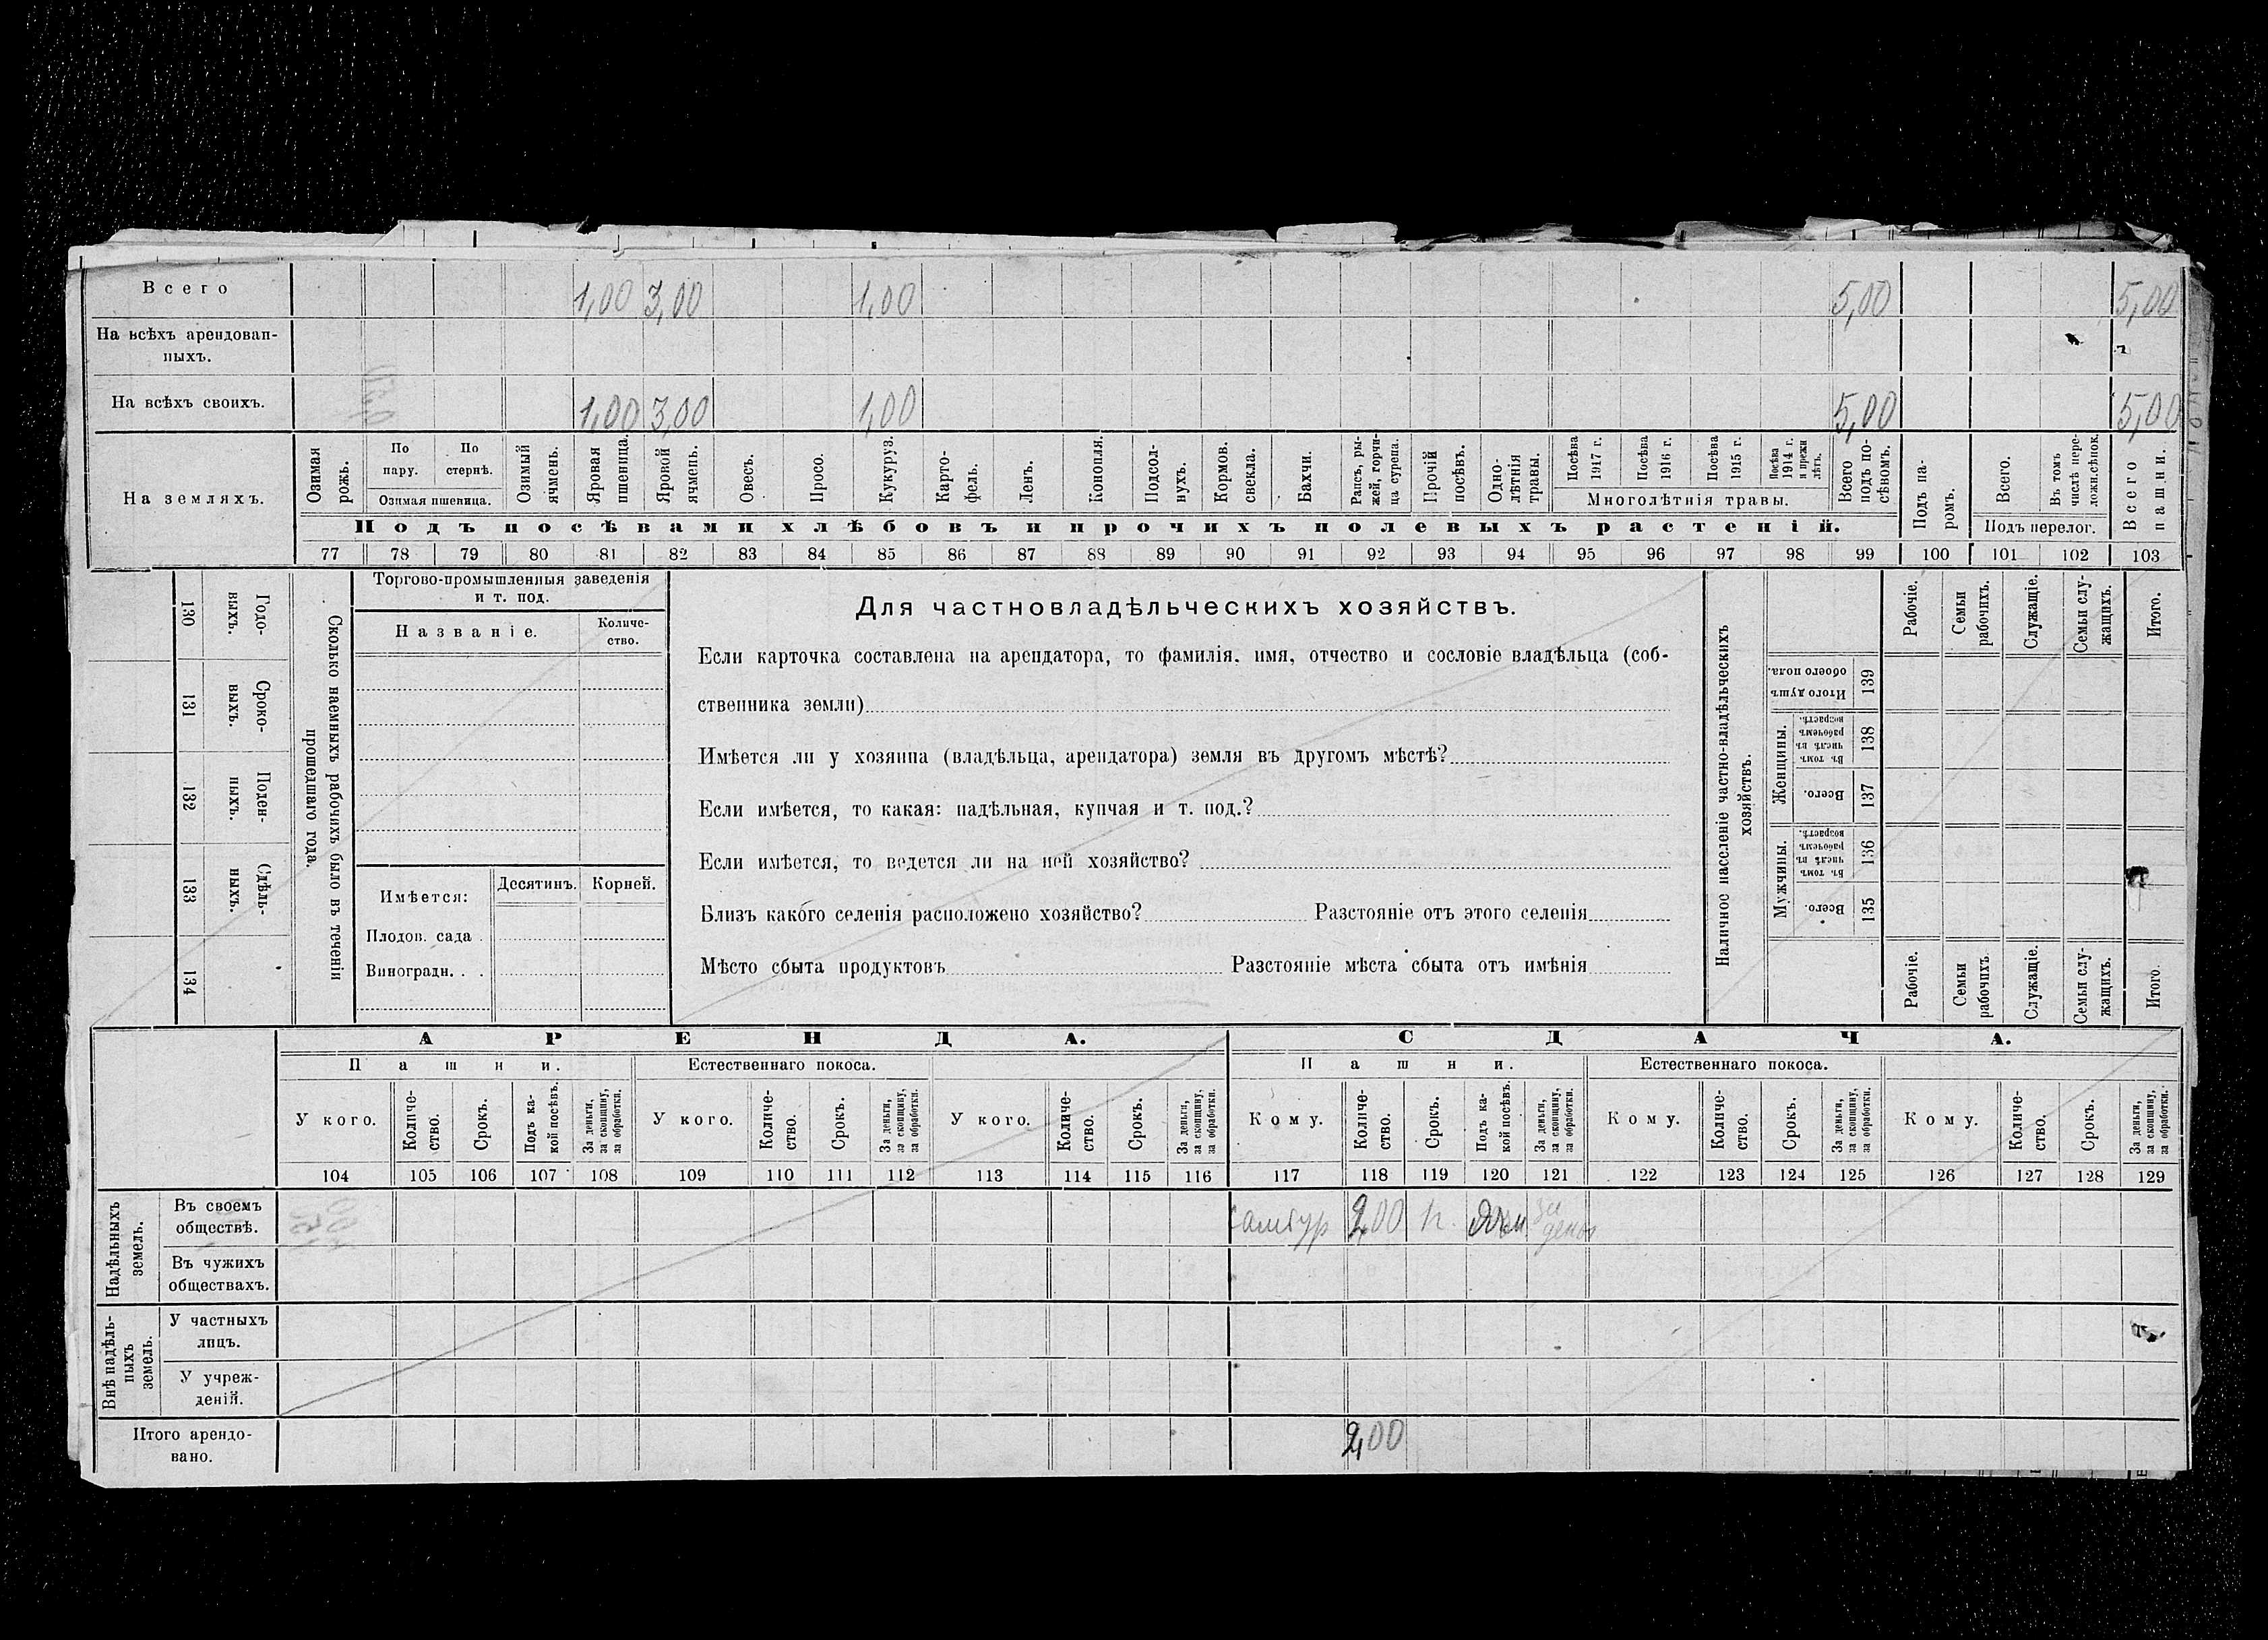 Всего 1,00 3,00 1,00 5,00 5,00
На всѣхъ арендован-
ныхъ.
На всѣхъ своихъ. 1,00 3,00 1,00 5,00 5,00
На земляхъ.
Озимая рожь.
По пару.
По стернѣ.
Озимая пшеница.
Озимый ячмень.
Яровая пшеница.
Яровой ячмень.
Овесъ.
Просо.
Кукуруз.
Карто-
фель.
Ленъ.
Конопля.
Подсол-
нухъ.
Кормов. свекла.
Бахчи.
Рапсъ, ры-
жей, горчи-
ца сурепа.
Прочій посѣвъ.
Одно-
лѣтнія травы.
Посѣва 1917 г.
Посѣва 1916 г.
Посѣва 1915 г.
Посѣва 1914 г. и прежн лѣтъ.
Многолѣтнія травы.
Всего подъ по-
сѣвомъ.
Подъ па-
ромъ.
Всего.
Въ томъ числѣ пере-
ложн.сѣнок.
Подъ перелог.
Всего пашни.
Подъ посѣвами хлѣбовъ и прочихъ полевыхъ растеній.
77 78 79 80 81 82 83 84 85 86 87 88 89 90 91 92 93 94 95 96 97 98 99 100 101 102 103
130 Годо-
выхъ.
131 Сроко-
выхъ.
132 Поден-
ныхъ.
133 Сдѣль-
ныхъ.
134
Сколько наемныхъ рабочихъ было въ теченіи
прошедшаго года.
Торгово-промышленныя заведенія
и т. под.
Названіе.
Количе-
ство.
Имѣется: Десятинъ. Корней.
Плодов. сада .
Виноградн. . .
Для частновладѣльческихъ хозяйствъ.
Если карточка составлена на арендатора, то фамилія, имя, отчество и сословіе владѣльца (соб-
ственника земли)
Имѣется ли у хозяина (владѣльца, арендатора) земля въ другомъ мѣстѣ?
Если имѣется, то какая: надѣльная, купчая и т. под.?
Если имѣется, то ведется ли на ней хозяйство?
Близъ какого селенія расположено хозяйство? Разстояніе отъ этого селенія
Мѣсто сбыта продуктовъ Разстояніе мѣста сбыта отъ имѣнія
Наличное населеніе частно-владѣльческихъ
хозяйствъ.
Рабочіе.
Семьи рабочихъ.
Служащіе.
Семьи слу-
жащихъ.
Итого.
Итого душъ обоего пола. 139
Женщины.
Въ томъ числѣ въ рабочемъ возрастѣ. 138
Всего. 137
Мужчины.
Въ томъ числѣ въ рабочемъ возрастѣ. 136
Всего. 135
Рабочіе.
Семьи рабочихъ.
Служащіе.
Семьи слу-
жащихъ.
Итого.
АРЕНДА. СДАЧА.
Пашни. Естественнаго покоса. Пашни. Естественнаго покоса.
У кого.
Количе-
ство.
Срокъ.
Подъ ка-
кой посѣвъ.
За деньги, за скопщину, за обработки.
У кого.
Количе-
ство.
Срокъ.
За деньги, за скопщину, за обработки.
У кого.
Количе-
ство.
Срокъ.
За деньги, за скопщину, за обработки.
Кому.
Количе-
ство.
Срокъ.
Подъ ка-
кой посѣвъ.
За деньги, за скопщину, за обработки.
Кому.
Количе-
ство.
Срокъ.
За деньги, за скопщину, за обработки.
Кому.
Количе-
ство.
Срокъ.
За деньги, за скопщину, за обработки.
104 105 106 107 108 109 110 111 112 113 114 115 116 117 118 119 120 121 122 123 124 125 126 127 128 129
Надѣльныхъ
земель.
Въ своемъ
обществѣ. 2,00 за
Въ чужихъ
обществахъ.
Внѣ надѣль-
ныхъ
земель.
У частныхъ
лицъ.
У учреж-
деній.
Итого арендо-
вано. 2,00